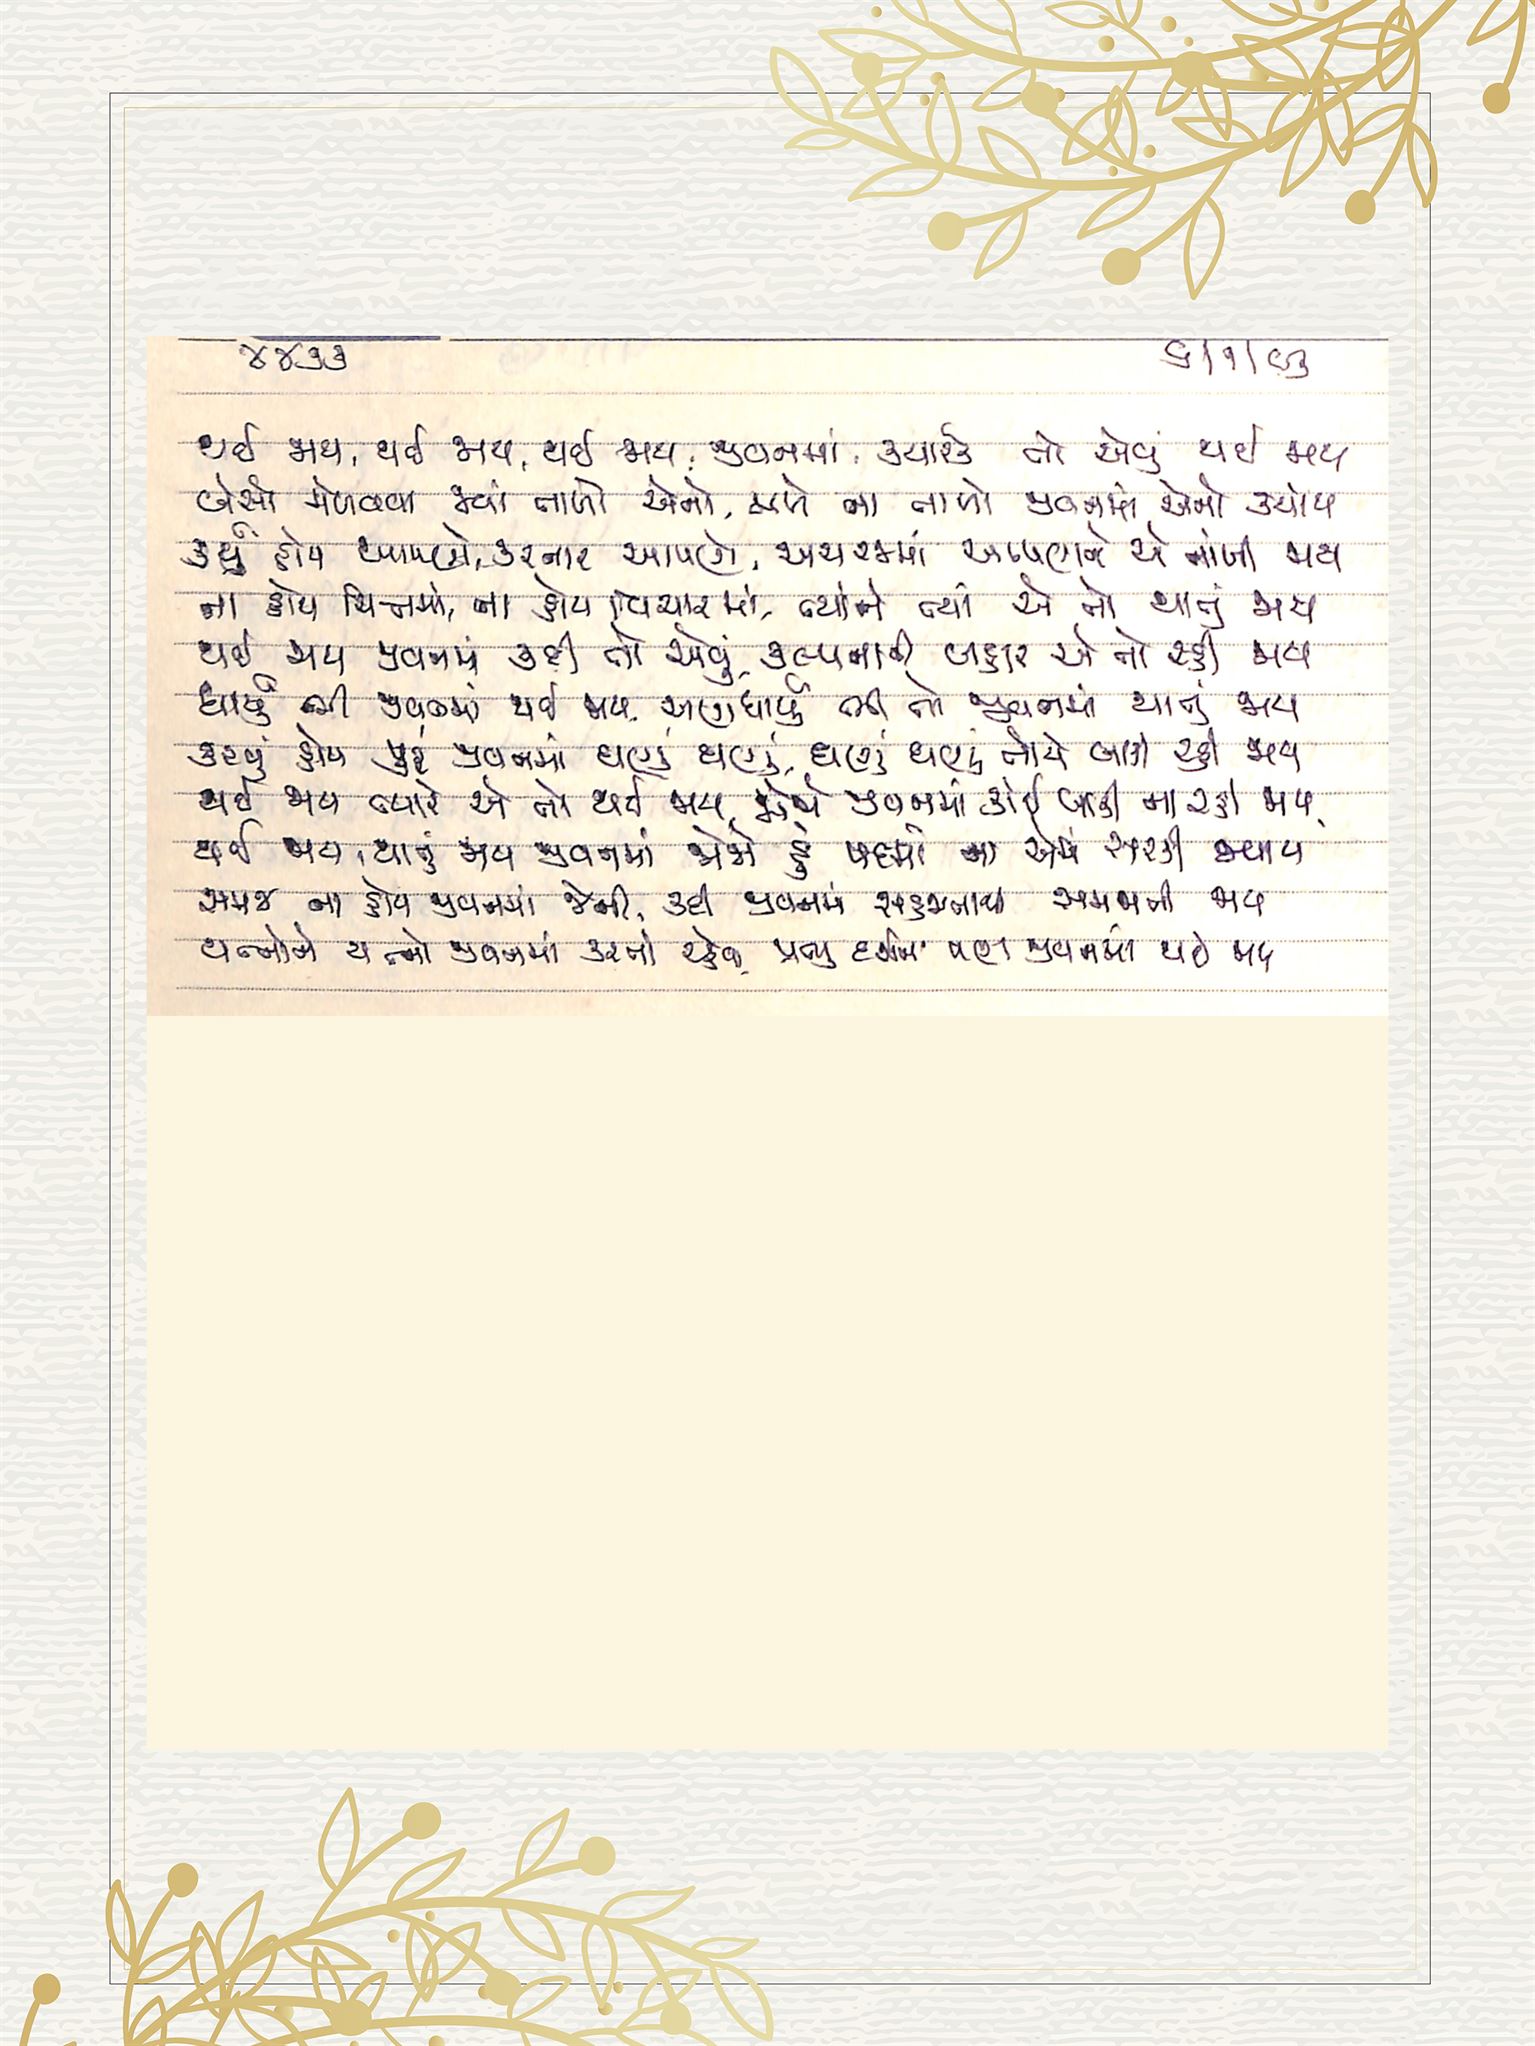 ૪૪૭૩ ૬/૧/૯૩
થઈ જાય, થઈ જાય, થઈ જાય, જીવનમાં, ક્યારેક તો એવું થઈ જાય
બેસો મેળવવા જ્યાં તાળો એનો, મળે ના તાળો જીવનમાં એનો ક્યાંય
કર્યું હોય આપણે, કરનાર આપણે, અચરજમાં આપણને એ નાંખી જાય
ના હોય ચિત્તમાં, ના હોય વિચારમાં, ત્યાંને ત્યાં એ તો થાતું જાય
થઈ જાય જીવનમાં કદી તો એવું, કલ્પનાની બહાર એ તો રહી જાય
ધાર્યું ભી જીવનમાં થઈ જાય, અણધાર્યું ભી તો જીવનમાં થાતું જાય
કરવું હોય પૂરું જીવનમાં ઘણું ઘણું, ઘણું ઘણું તોયે બાકી રહી જાય
થઈ જાય ત્યારે એ તો થઈ જાય, જીવનમાં કોઈ બાકી ના રહી જાય
થઈ જાય, થાતું જાય જીવનમાં જોજે હું પદમાં ના એમાં સરકી જવાય
સમજ ના હોય જીવનમાં જેની, કદી જીવનમાં સહજતાથી સમજાતી જાય
યત્નોને યત્નો જીવનમાં કરતો રહેજે, પ્રભુ દર્શન પણ જીવનમાં થઈ જાય